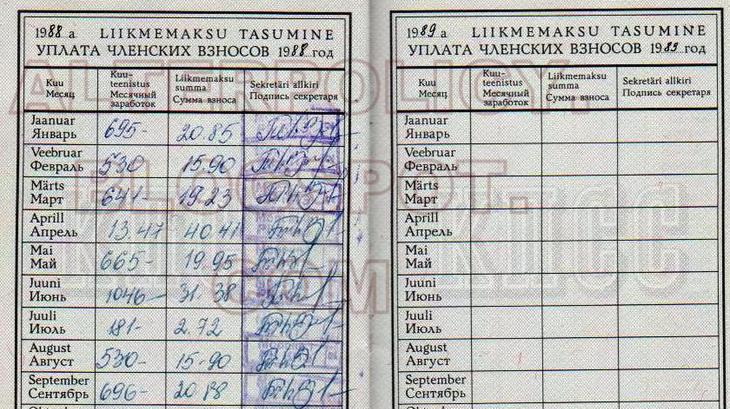 1988 a. LIIKMEMAKSU TASUMINE
УПЛАТА ЧЛЕНСКИХ ВЗНОСОВ 1988 год
Kuu
Месяц
Kuu-
teenistus
Месячный
заработок
Liikmemaksu
summa
Сумма взноса
Sekretäri allkiri
Подпись секретаря
Jaanuar
Январь 695- 20.85
Veebruar
Февраль 530- 15.90
Märts
Март 641- 19.23
Aprill
Апрель 1347 40.41
Mai
Май 665- 19.95
Juuni
Июнь 1046- 31.38
Juuli
Июль 181- 2.72
August
Август 530- 15-90
September
Сентябрь 696- 20.88
1989 a. LIIKMEMAKSU TASUMINE
УПЛАТА ЧЛЕНСКИХ ВЗНОСОВ 1989 год
Kuu
Месяц
Kuu-
teenistus
Месячный
заработок
Liikmemaksu
summa
Сумма взноса
Sekretäri allkiri
Подпись секретаря
Jaanuar
Январь
Veebruar
Февраль
Märts
Март
Aprill
Апрель
Mai
Май
Juuni
Июнь
Juuli
Июль
August
Август
September
Сентябрь